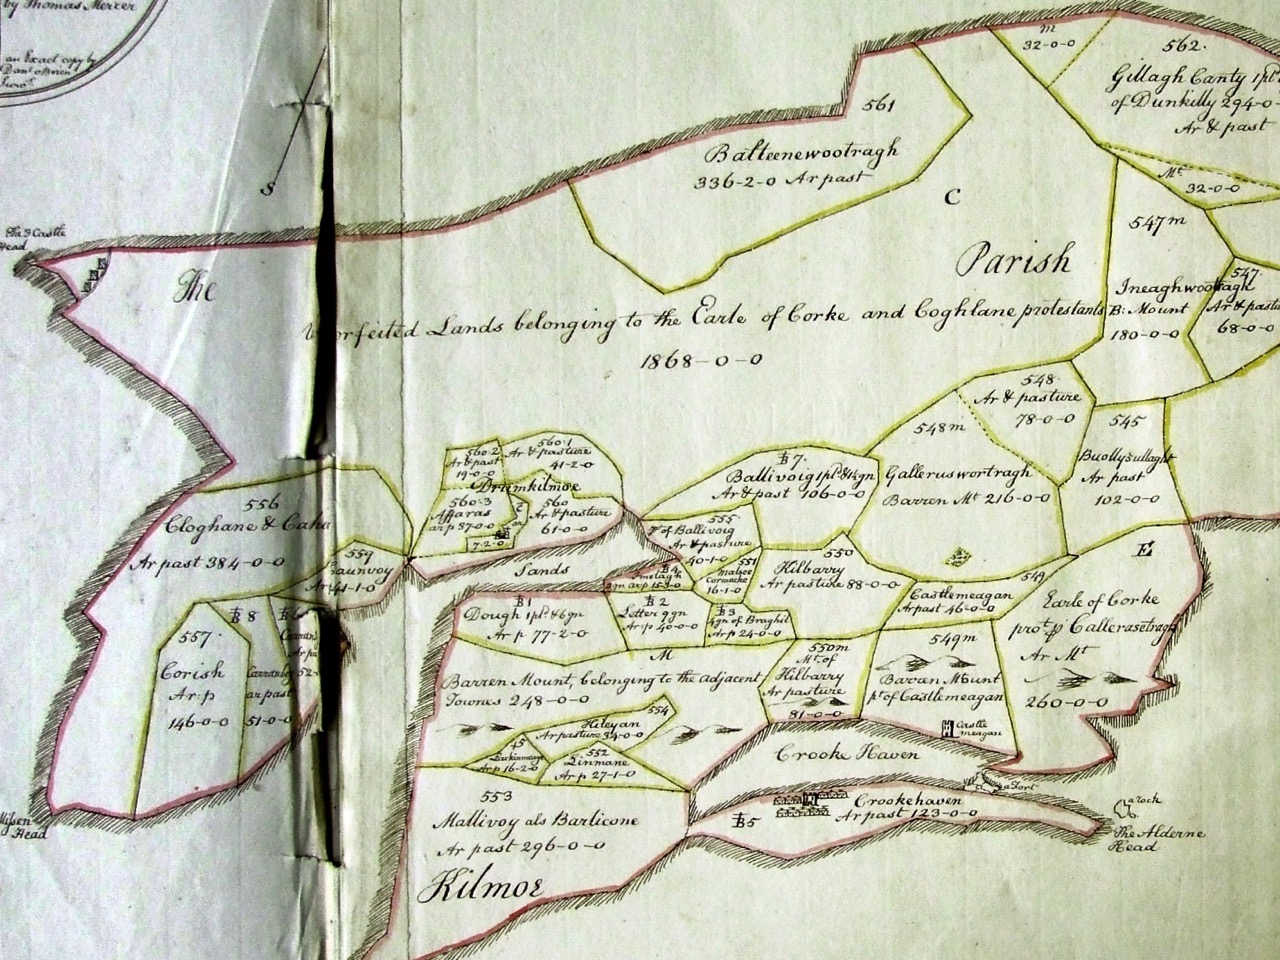 by Thomas Mercer
an Exact copy by
Danl. oBrien
Survr.
S
The 3 Castle
Head
The
Parish
C
Unforfeited Lands belonging to the Earle of Corke and Coghlane protestants
1868-0-0
561
Balteenewootragh
336-2-0 Ar past
m
32-0-0
562.
Gillagh Canty 1pl
of Dunkilly 294-0-
Ar & past
Mt.
32-0-0
547m
Ineaghwootragh
B: Mount
180-0-0
547.
Ar & pastu
68-0-0
548.
Ar & pasture
78-0-0
548m
Galleruswortragh
Barren Mt 216-0-0
545
Ar past
102-0-0
556
Cloghane & Caha
Ar past 384-0-0
559
Ar 41-1-0
560.2
Ar & past
19-0-0
560.1
Ar & pasture
41-2-0
Drumkilmoe
560.3
Affaras
ar p 87-0-0
560
Ar & pasture
61-0-0
7-2-0
Sands
B7.
Ballivoig 1pld & 1gn
Ar & past 106-0-0
555
of Ballivoig
Ar & pasture
40-1-0
B4
gn ar p 15-3-0
551
Cormacke
16-1-0
550
Kilbarry
Ar pasture 88-0-0
Castlemeagan
Ar past 46-0-0
549
E
Earle of Corke
prot. p Callerasetragh
Ar Mt
260-0-0
B1
Dough 1pld & 6gn
Ar p 77-2-0
B2
Letter 9gn
Ar p 40-0-0
B3
4gn of Braghil
Ar p 24-0-0
M
Barren Mount, belonging to the adjacent
Townes 248-0-0
550m
Mt. of
Kilbarry
Ar pasture
81-0-0
549m
Barran Mount
pt of Castlemeagan
Castle
meagan
B8
B6
557.
Corish
Ar: p
146-0-0
ar past
51-0-0
Ar pa
52-
554
Hileyan
Ar pasture 34-0-0
Ar p 16-2-0
552
Linmane
Ar p 27-1-0
Crooke Haven
a Fort
553
Mallivoy als Barlicone
Ar past 296-0-0
B5
Crookehaven
Ar past 123-0-0
a rock
The Alderne
Head
Missen
Head
Kilmoe